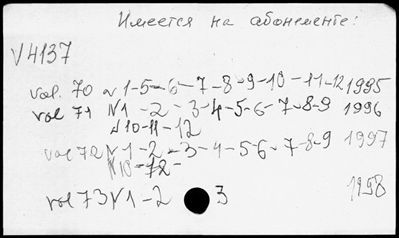 Имеется на абонементе:
V 4137
vol. 70 N 1-5-6-7-8-9-10-11-12 1995
vol 71 N1-2-3-4-5-6-7-8-9 1996
N10-11-12
vol 72 N1-2-3-4-5-6-7-8-9 1997
N10-12-
vol 73 N1-2 3 1998